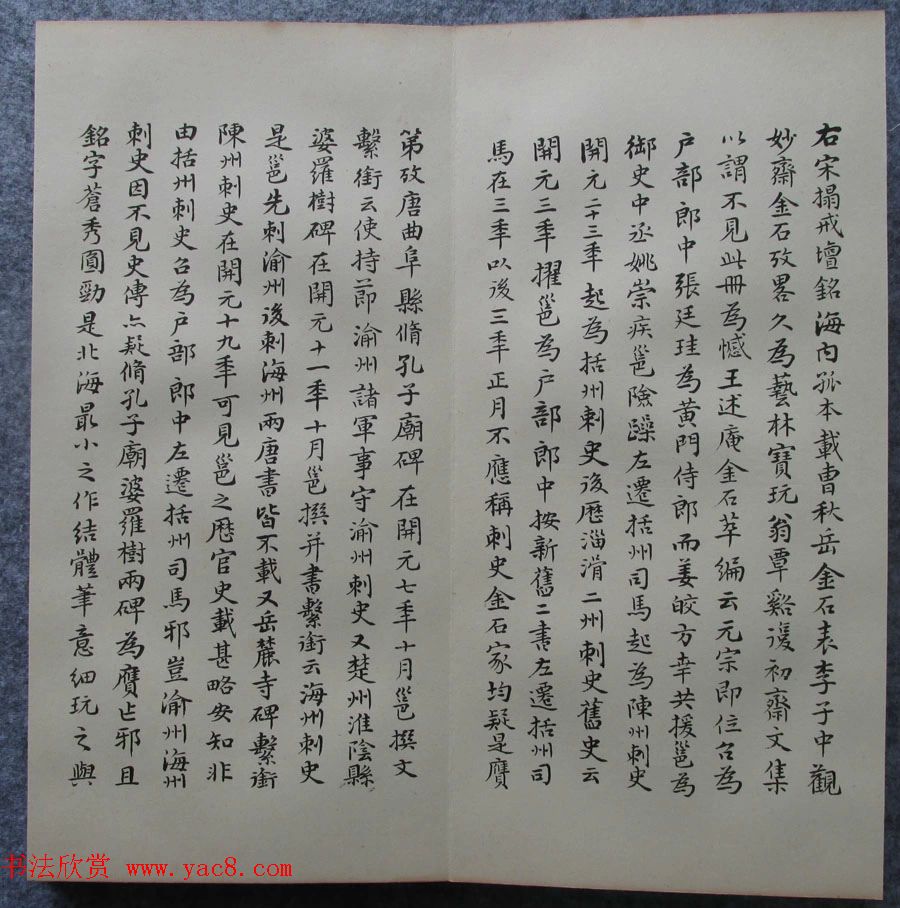 右宋搨戒壇銘海内孤本載曹秋岳金石表李子中觀
妙齋金石攷畧久為藝林寶玩翁覃谿復初齋文集
以謂不見此冊為憾王述庵金石萃編云元宗即位召為
戶部郎中張廷珪為黄門侍郎而姜皎方幸共援邕為
御史中丞姚崇疾邕險躁左遷括州司馬起為陳州刺史
開元二十三秊起為括州刺史後歷淄滑二州刺史舊史云
開元三秊擢邕為戶部郎中按新舊二書左遷括州司
馬在三秊以後三秊正月不應稱刺史金石家均疑是贗
第攷唐曲阜縣脩孔子廟碑在開元七秊十月邕撰文
繫銜云使持莭渝州諸軍事守渝州刺史又楚州淮陰縣
婆羅樹碑在開元十一秊十月邕撰并書繫銜云海州刺史
是邕先刺渝州後刺海州兩唐書皆不載又岳麓寺碑繫銜
陳州刺史在開元十九秊可見邕之歷官史載甚略安知非
由括州刺史召為戶部郎中左遷括州司馬邪豈渝州海州
刺史因不見史傳亦疑脩孔子廟婆羅樹兩碑為贗亡邪且
銘字蒼秀圓勁是北海最小之作結體筆意細玩之與
书法欣赏 www.yac8.com